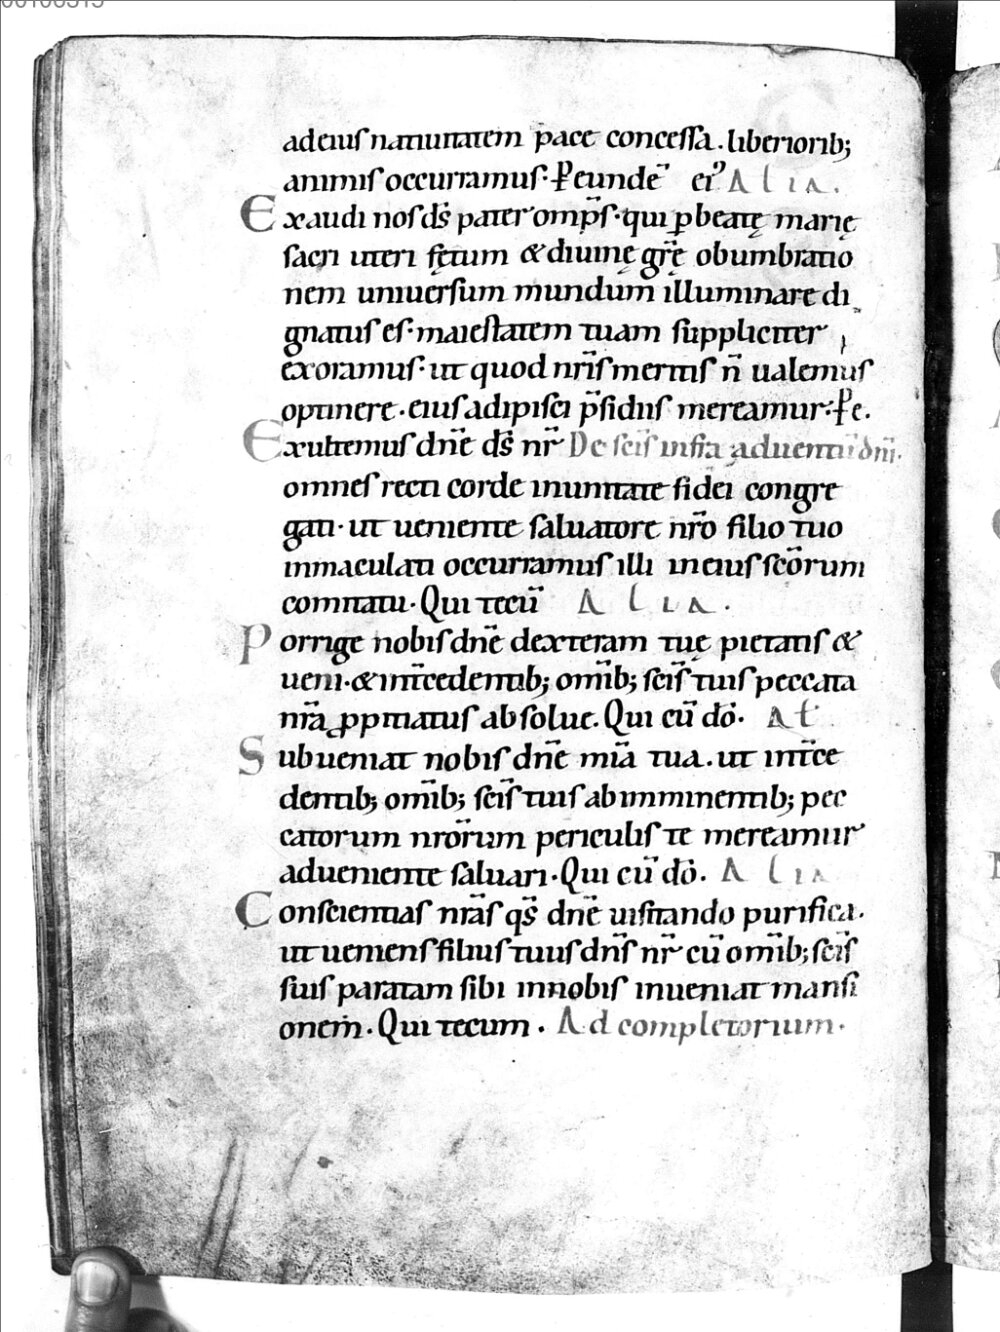 ad eiusnatiuitatem pace concessa. liberiorib;
animisoccurramus. P eundē ei' Alia.
Exaudi nos dš pater omp̄s. qui p beatę marię
sacri uteri fętum & diuinę grę̄ obumbratio
nem uniuersum mundum illuminare di
gnatus es. maiestatem tuam suppliciter
exoramus. ut quod nrīs meritis n̄ ualemus
optinere. eius adipisci p̄sidiis mereamur. P e.
Exultemus dn̄e dš nr̄ De scīs infra aduentū dn̄i.
omnes recti corde inunitate fidei congre
gati. ut ueniente saluatore nrō filio tuo
inmaculati occurramus illi in eius scōrum
comitatu. Qui tecū Alia.
Porrige nobis dn̄e dexteram tuę pietatis &
ueni. & int̄cedentib; om̄ib; scīs tuis peccata
nrā ppitiatus absolue. Qui cū dō. Al̄
Subueniat nobis dn̄e mīa tua. ut int̄ce
dentib; om̄ib; scīs tuis ab imminentib; pec
catorum nrōrum periculis te mereamur
adueniente saluari. Qui cū dō. Alia
Conscientias nrās qš dn̄e uisitando purifica.
ut ueniens filius tuus dn̄s nr̄ cū om̄ib; scīs
suis paratam sibi innobis inueniat mansi
onem. Qui tecum. Ad completorium.